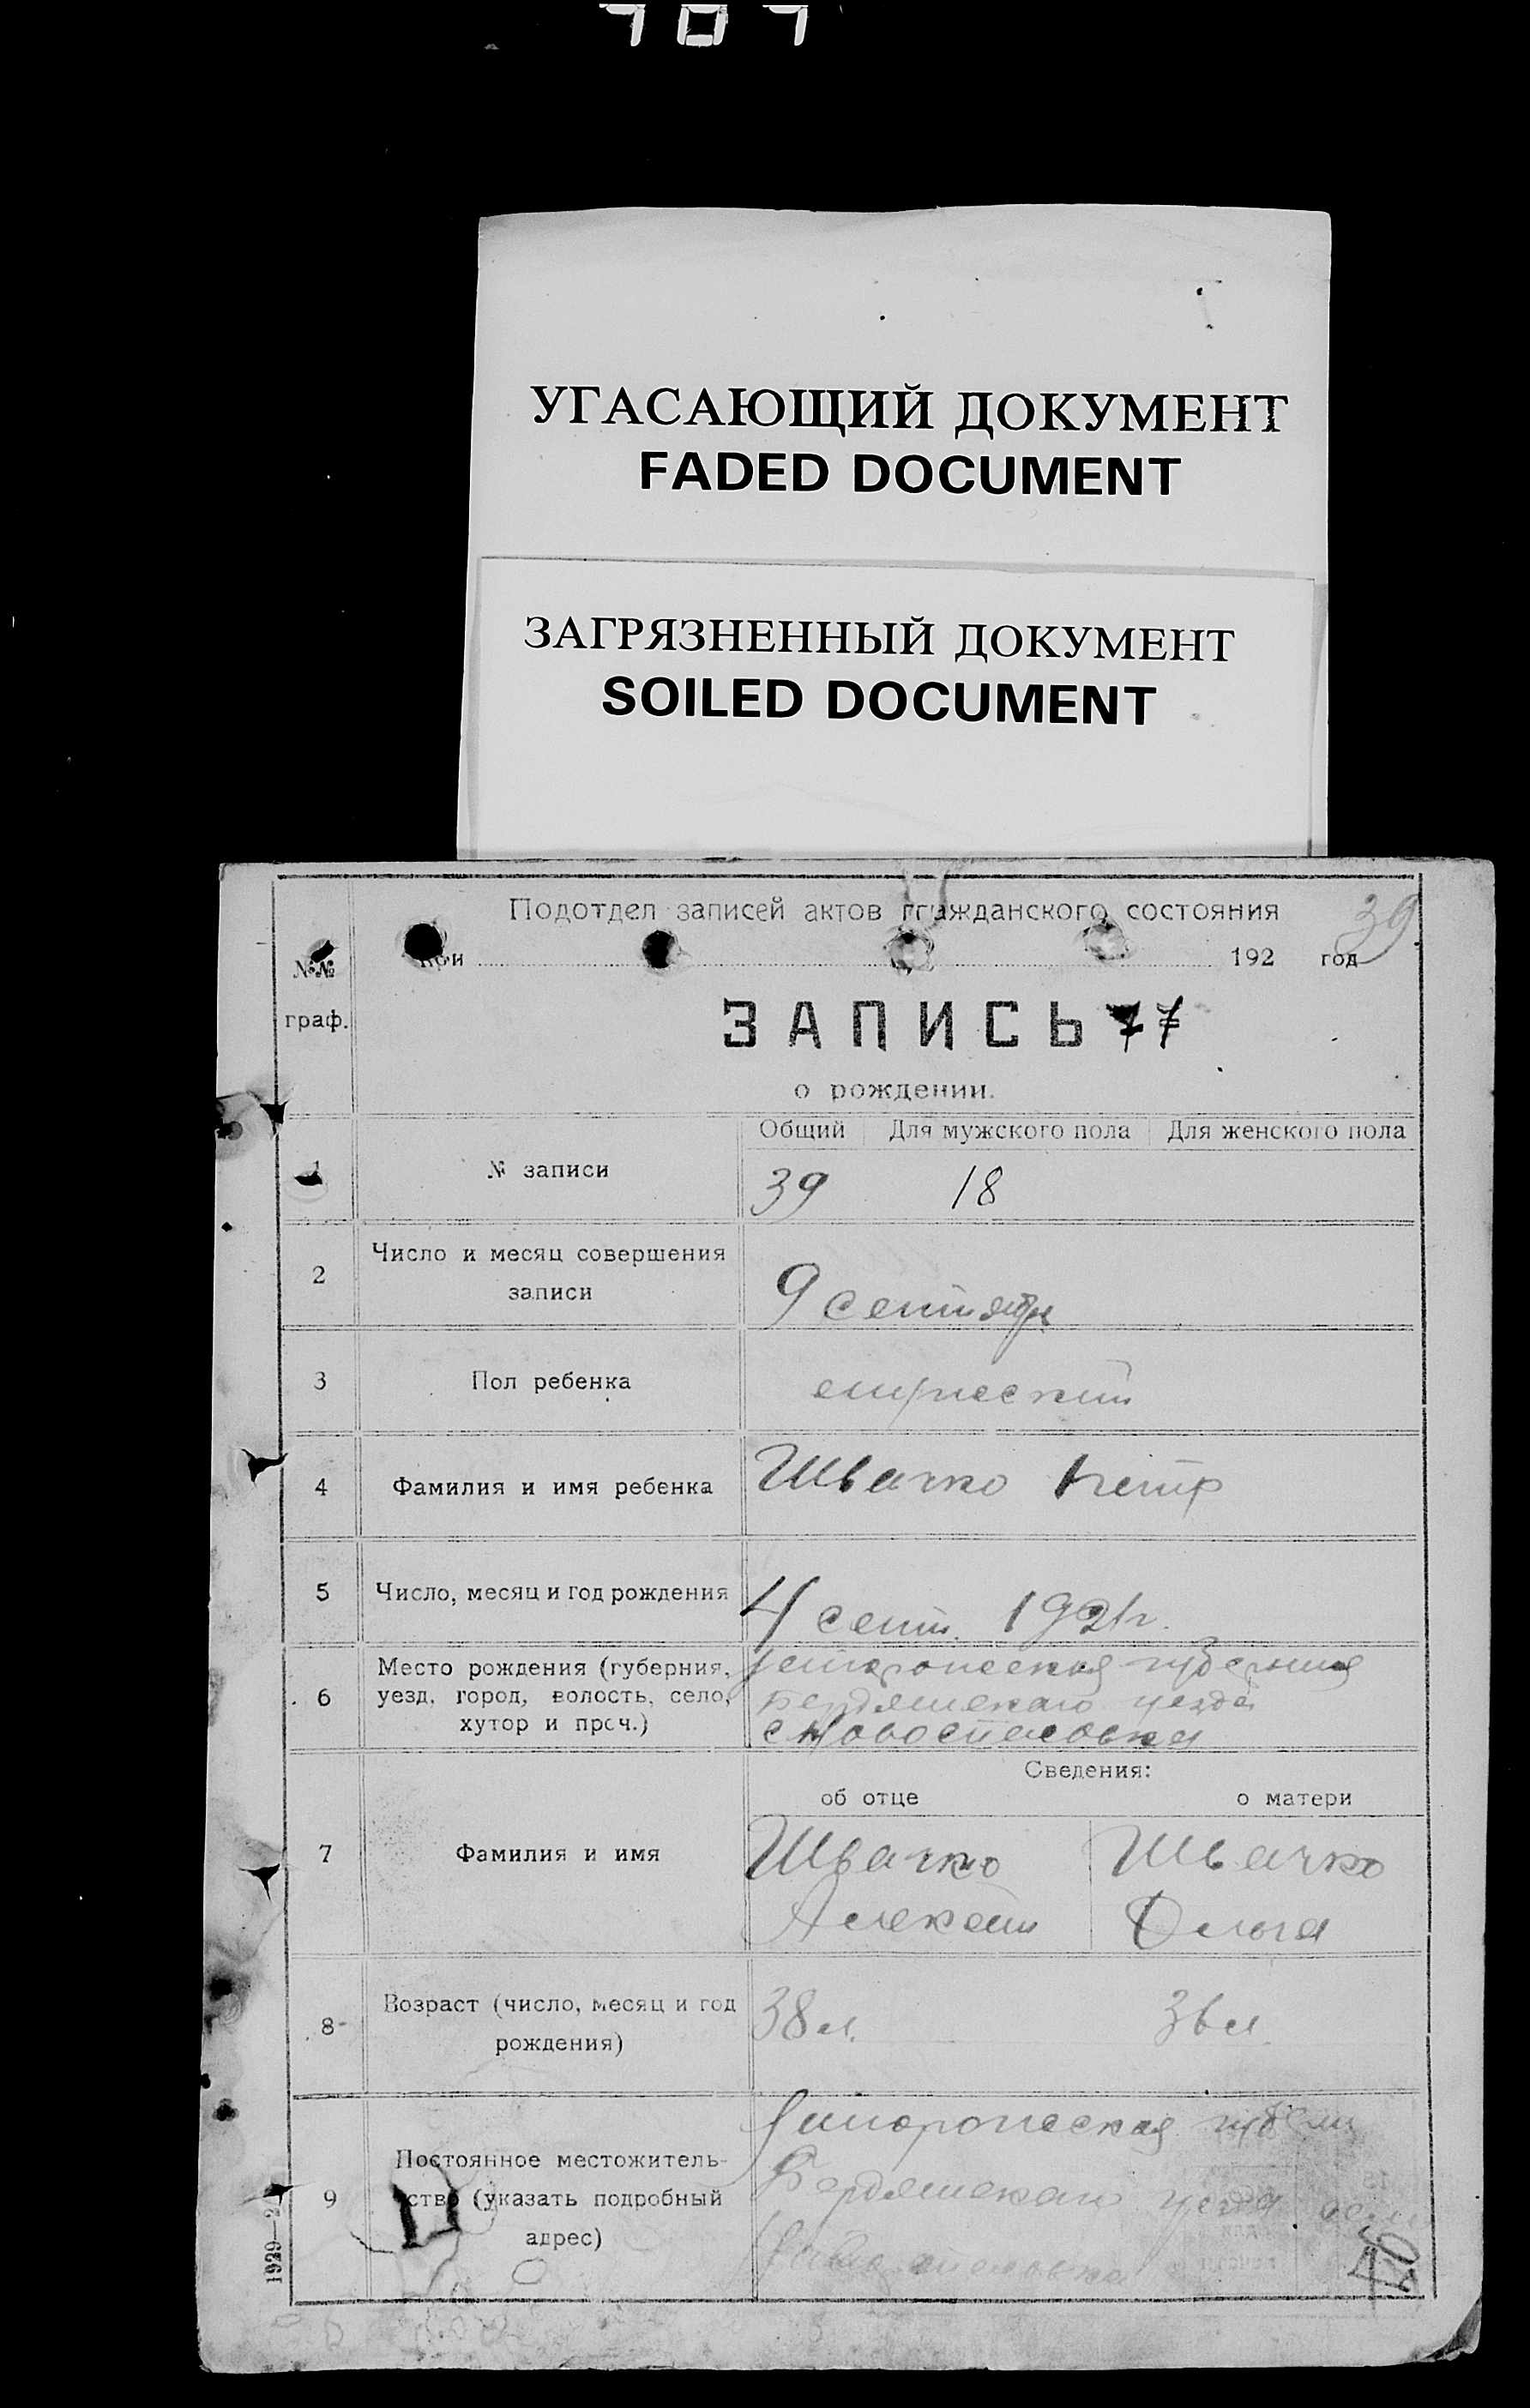 УГАСАЮЩИЙ ДОКУМЕНТ
FADED DOCUMENT
ЗАГРЯЗНЕННЫЙ ДОКУМЕНТ
SOILED DOCUMENT
Подотдел записей актов гражданского состояния
39
при 192 год
№№ граф.
ЗАПИСЬ
о рождении.
Общий Для мужского пола Для женского пола
1 № записи 39 18
2 Число и месяц совершения записи 9 сентября
3 Пол ребенка мужеский
4 Фамилия и имя ребенка Швачко Петр
5 Число, месяц и год рождения 4 сент. 1921г.
6 Место рождения (губерния, уезд, город, волость, село, хутор и проч.)
губерния
Бердянскаго уезда
с Новоспасовка
Сведения:
об отце о матери
7 Фамилия и имя Швачко Швачко
Алексей Ольга
8 Возраст (число, месяц и год рождения) 38 л. 36 л.
9 Постоянное местожительство (указать подробный адрес)
Бердянскаго уезда
40